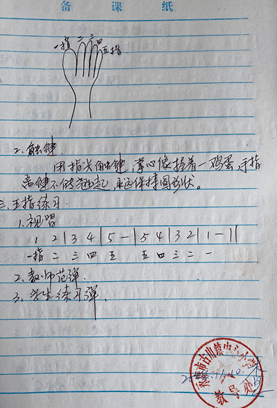 备课纸
一指 二 三 四 五指
2. 触键
用指尖触键,掌心像握着一鸡蛋,手指
离键不能翘起,永远保持圆弧状。
三、五指练习
1. 视唱
1 2 | 3 4 | 5 - | 5 4 | 3 2 | 1 - ||
一指 二 三 四 五 五 四 三 二 一
2. 教师范弹
3. 学生练习弹
中心小学
教导处